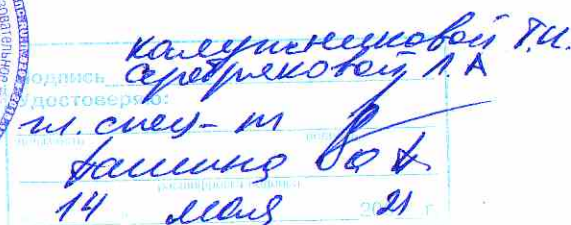 Калужниковой Т.И.
Подпись Серебряковой Л.А
Удостоверяю:
гл. спец-т
должность подпись
расшифровка подписи
14 мая 2021 г